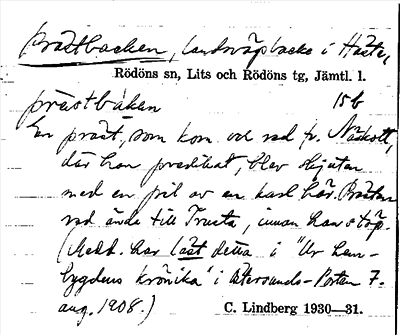 Prästbacken, landsvägsbacke i Häste,
Rödöns sn, Lits och Rödöns tg, Jämtl. l.
prästbàkan 15b
En präst, som kom och red fr. Näskott,
där han predikat, blev skjuten
med en pil av en karl här. Prästen
red ända till Trusta, innan han stöp.
(Medd. har läst detta i "Ur hem-
bygdens krönika" i Östersunds-Posten 7.
aug. 1908.) C. Lindberg 1930—31.